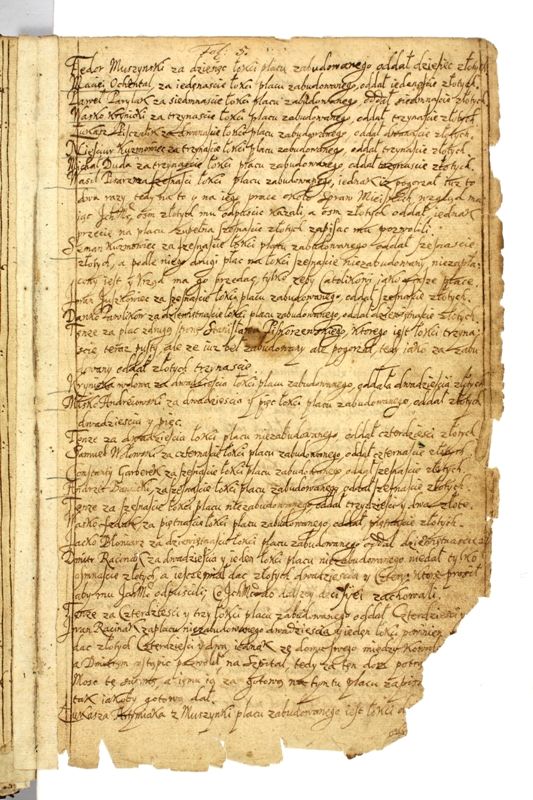 Fol: 5.
Fedor Muszynski za dziewięc łokci placu zabudowanego oddał dziewięc złotych
Maciej Ochental za iedenascie łokci placu zabudowanego, oddał iedenascie złotych.
Pawel za siedmnascie łokci placu zabudowanego, oddał siedmnascie złotych
Wasko Krynicki za trzynascie łokci placu zabudowanego, oddał trzynascie złotych
Łukasz za dwanascie łokci placu zabudowanego, oddał dwanascie złotych.
Kuzmowiec za trzynascie łokci placu zabudowanego, oddał trzynascie złotych
Michał Duda za trzynascie łokci placu zabudowanego, oddał trzynascie złotych.
Wasil Pisarz za szesnascie łokci placu zabudowanego, iednak iż pogorzał iuz to
dwa razy tedy na to y na iego prace około spraw Mieiskich wzgląd ma
iąc osm złotych mu odpuscic kazali, a osm złotych oddał iednak
przecie na placu zupełna szesnascie złotych zapisac mu pozwolili.
Szman Kuzmowiec za szesnascie łokci placu zabudowanego oddał szesnascie
złotych, a podle niego drugi plac na łokci szesnascie niezabudowany niezapła
cony iest y Urząd ma go przedac tylko zeby Catolikowi
Iwan za szesnascie łokci placu zabudowanego, oddał szesnascie złotych.
Danko Pawlikow za dziewietnascie łokci placu zabudowanego, oddał dziewietnascie złotych
Tenze za plac zdrugi Stanisława Pimorzewskiego, ktorego iest łokci trzyna:
scie, teraz pusty, ale ze iuz beł zabudowany ale pogorzał, tedy iako za zabu
dowany oddał złotych trzynascie
Hrynicka wdowa za dwadziescia łokci placu zabudowanego, oddała dwadziescia złotych
Wasko Andreiowski za dwadziescia y pięc łokci placu zabudowanego, oddał złotych
dwadziescia y pięc.
Tenze za dwadziescia łokci placu niezabudowanego, oddał czterdziesci złotych
Samuel za czternascie łokci placu zabudowanego oddał czternascie złotych
Constanty Garbarek za szesnascie łokci placu zabudowanego oddał szesnascie złotych
Andrzei za szesnascie łokci placu zabudowanego oddał szesnascie złotych
Tenze za szesnascie łokci placu niezabudowanego oddał trzydziesci y dwa złote.
Wasko za piętnascie łokci placu zabudowanego oddał piętnascie złotych.
Jacko Bloniarz za dziewietnascie łokci placu zabudowanego oddał dziewietnascie
Dmitr Racinak za dwadziescia y ieden łokci placu niezabudowanego niedał tylko
osmnascie złotych a ieszcze miał dac złotych dwadziescia y cztery, ktore prosił
aby mu JchMc odpuscili; Co JchMc do dalszy zachowali.
Tenze za czterdziesci y trzy łokci placu zabudowanego oddał czterdziesci
Iwan Racinak za plac niezabudowanego dwadziescia y ieden łokci powinien
dac złotych czterdziesci y dwa, iednak ze domu swego między
a Dmitrym ustąpic pozwolił na Szpital, tedy za ten dom
Mosc te summe za gotową na tym tu placu
tak iakoby gotową dał.
Łukasza z Muszynki placu zabudowanego iest łokci